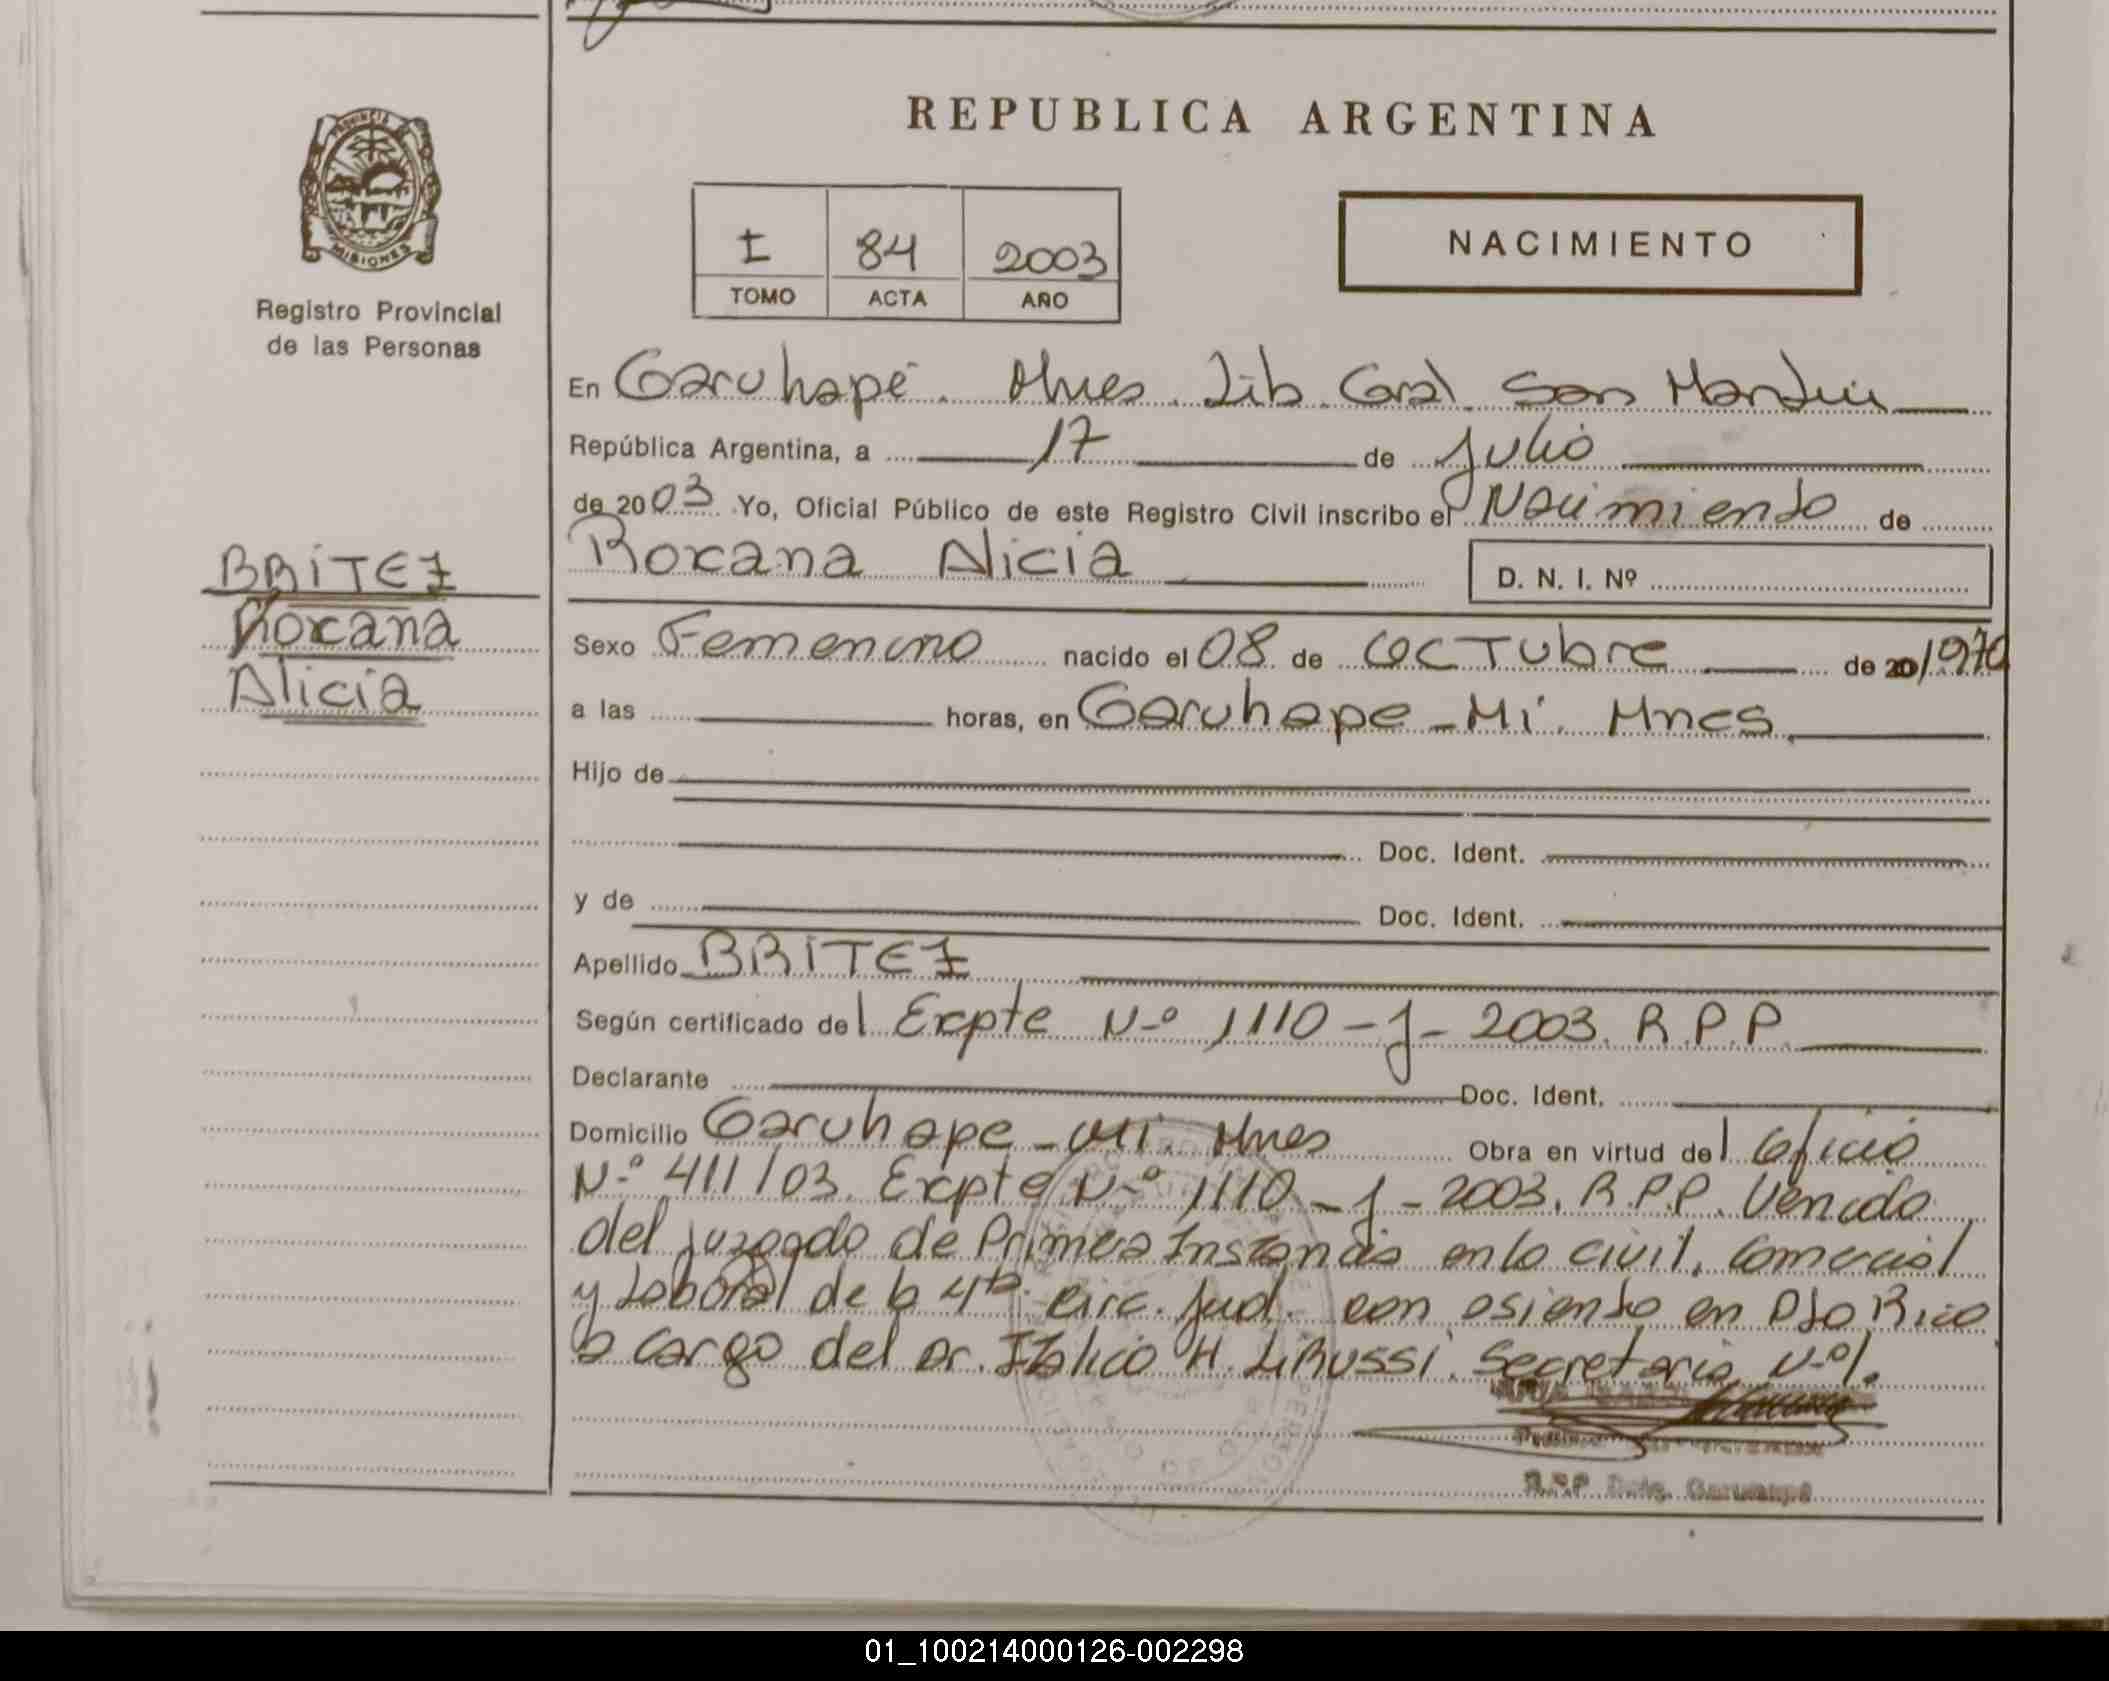 REPUBLICA ARGENTINA
PROVINCIA DE
MISIONES
Registro Provincial
de las Personas
I 84 2003
TOMO ACTA AÑO
NACIMIENTO
En Garuhapé. Mnes. Lib. Gral. San Martin
República Argentina, a 17 de Julio
de 2003 Yo, Oficial Público de este Registro Civil inscribo el Nacimiento de
Roxana Alicia D. N. I. Nº
BRITEZ
Roxana
Alicia
Sexo Femenino nacido el 08 de OCTubre de 20 1970
a las horas, en Garuhape - Mi. Mnes
Hijo de
Doc. Ident.
y de Doc. Ident.
Apellido BRITEZ
Según certificado del Expte N-º 1110 - J - 2003. R.P.P.
Declarante Doc. Ident.
Domicilio Garuhape - Mi. Mnes Obra en virtud del Oficio
N-º 411/03. Expte N-º 1110 - J - 2003. R.P.P. Venido
del Juzgado de Primera Instancia en lo civil, Comercial
y Laboral de la 4ta. Circ. Jud. con asiento en Pto Rico
a cargo del Dr. Italico H. LiBRussi. Secretaria N-º 1.
R.P.P. Garuhapé
01_100214000126-002298